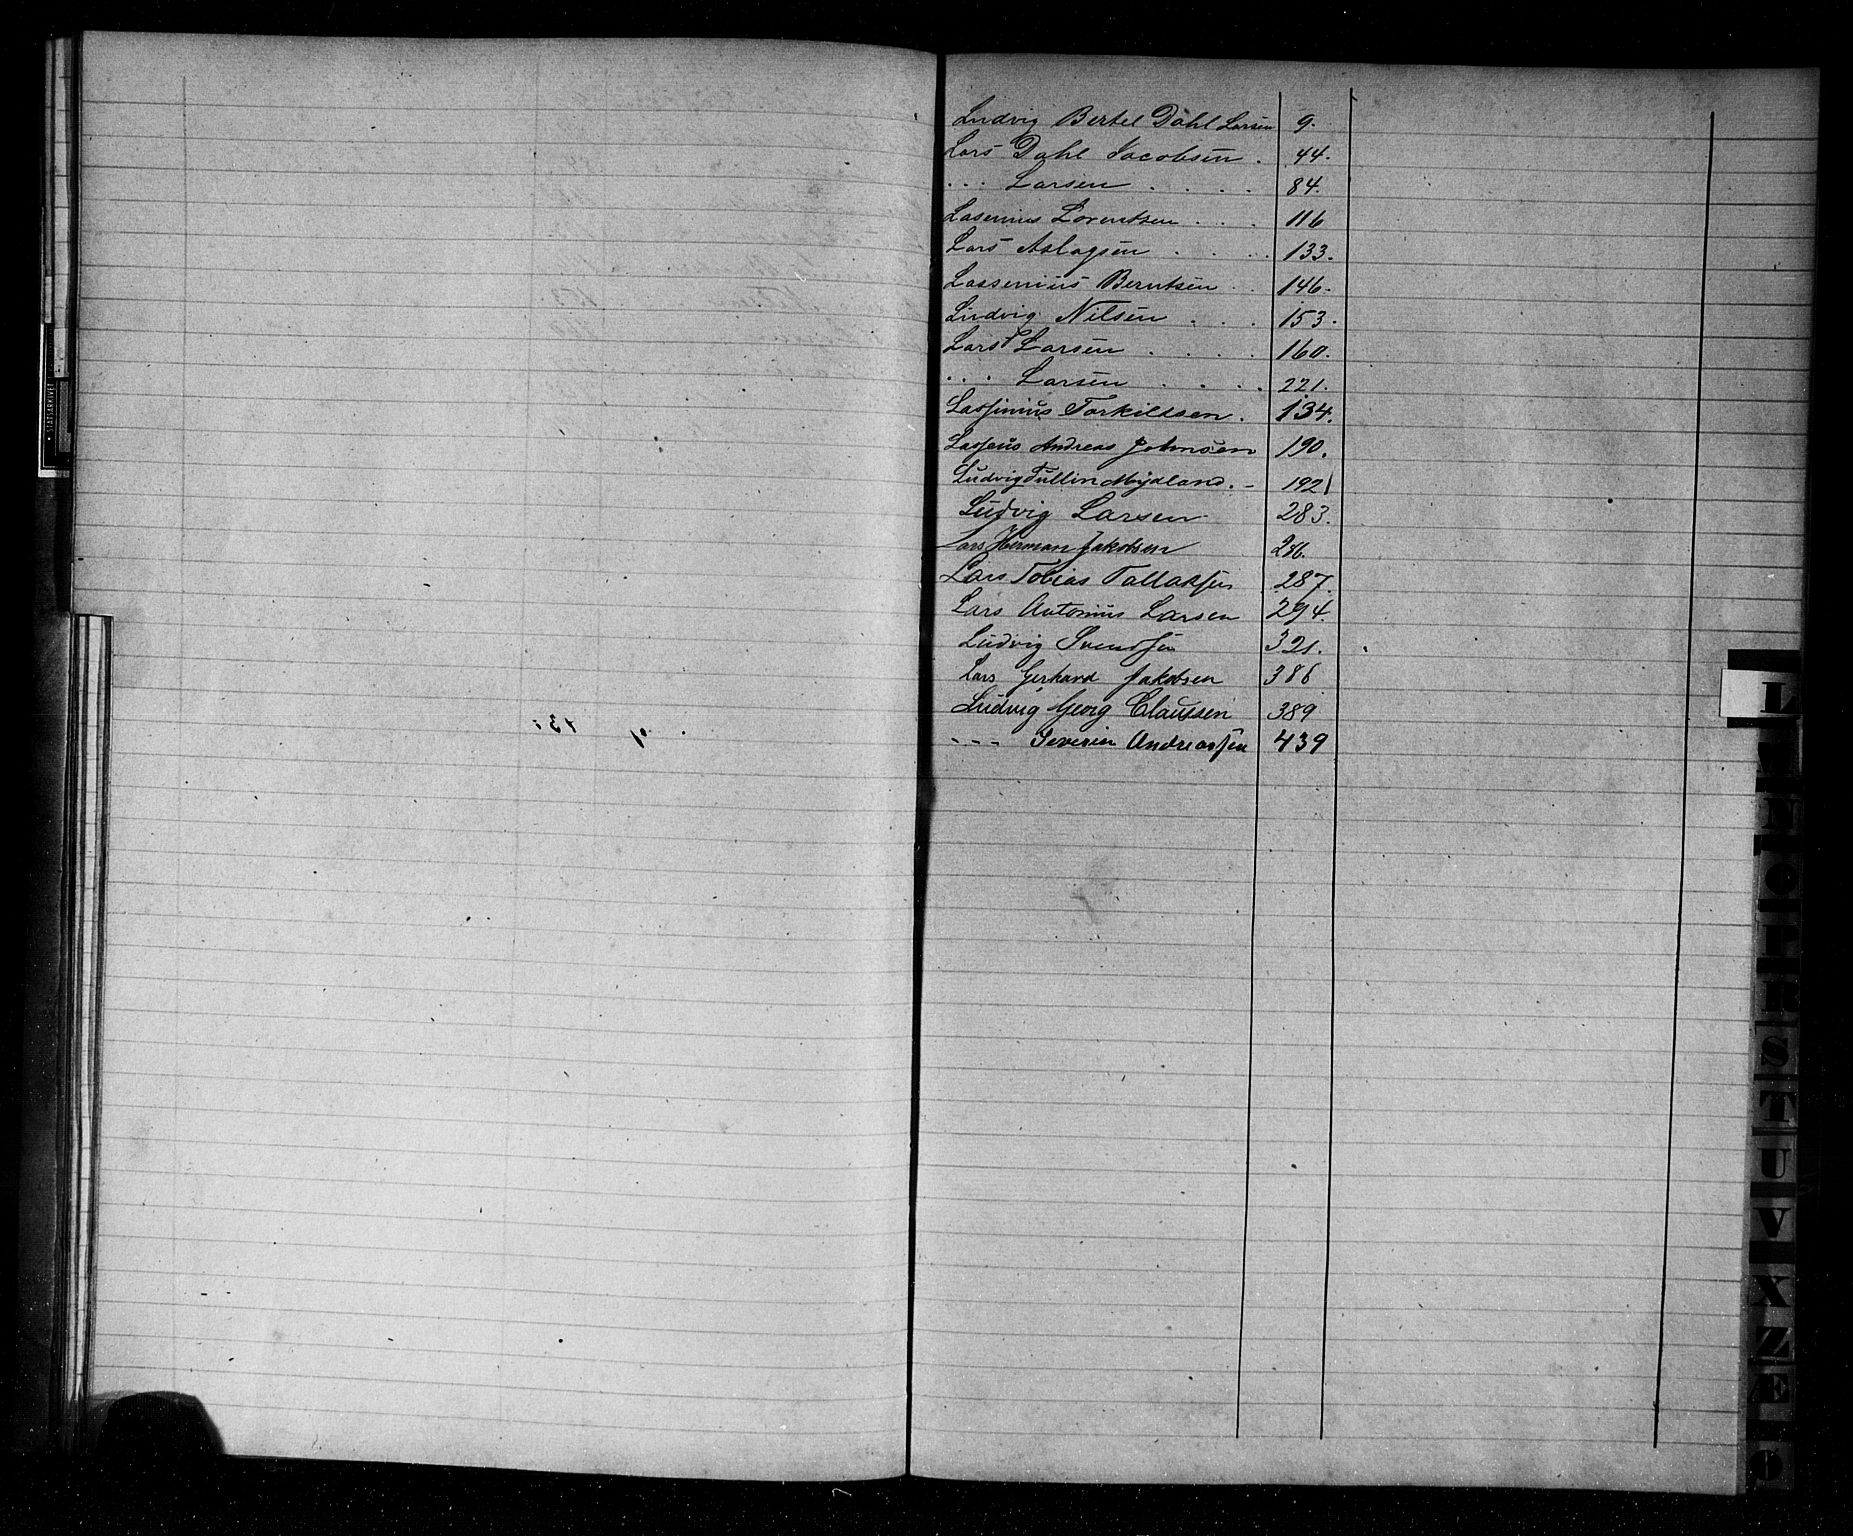 Ludvig Bertel Dahl Larsen 9.
Lars Dahl Jacobsen . 44.
... Larsen . . . . 84.
Lasenius Lorentsen . . . 116
Lars Aslagsen . . . . 133.
Lassenius Berntsen . . 146.
Ludvig Nilsen . . . 153.
Lars Larsen . . . . 160.
... Larsen . . . . 221.
Lassinius Torkildsen . 134.
Lassenus Andreas Johnsen 190.
Ludvig Tullin Mydland . - 192
Ludvig Larsen 283.
Lars Herman Jakobsen
Lars Tobias Tallaksen 287.
Lars Antonius Larsen 294.
Ludvig Svendsen 321.
Lars Gerhard Jakobsen 386
Ludvig Georg Claussen 389
- - - Severin Andreassen 439
STATSARKIVET
L
N
O
P
R
S
T
U
V
X
Z
Æ
Ø